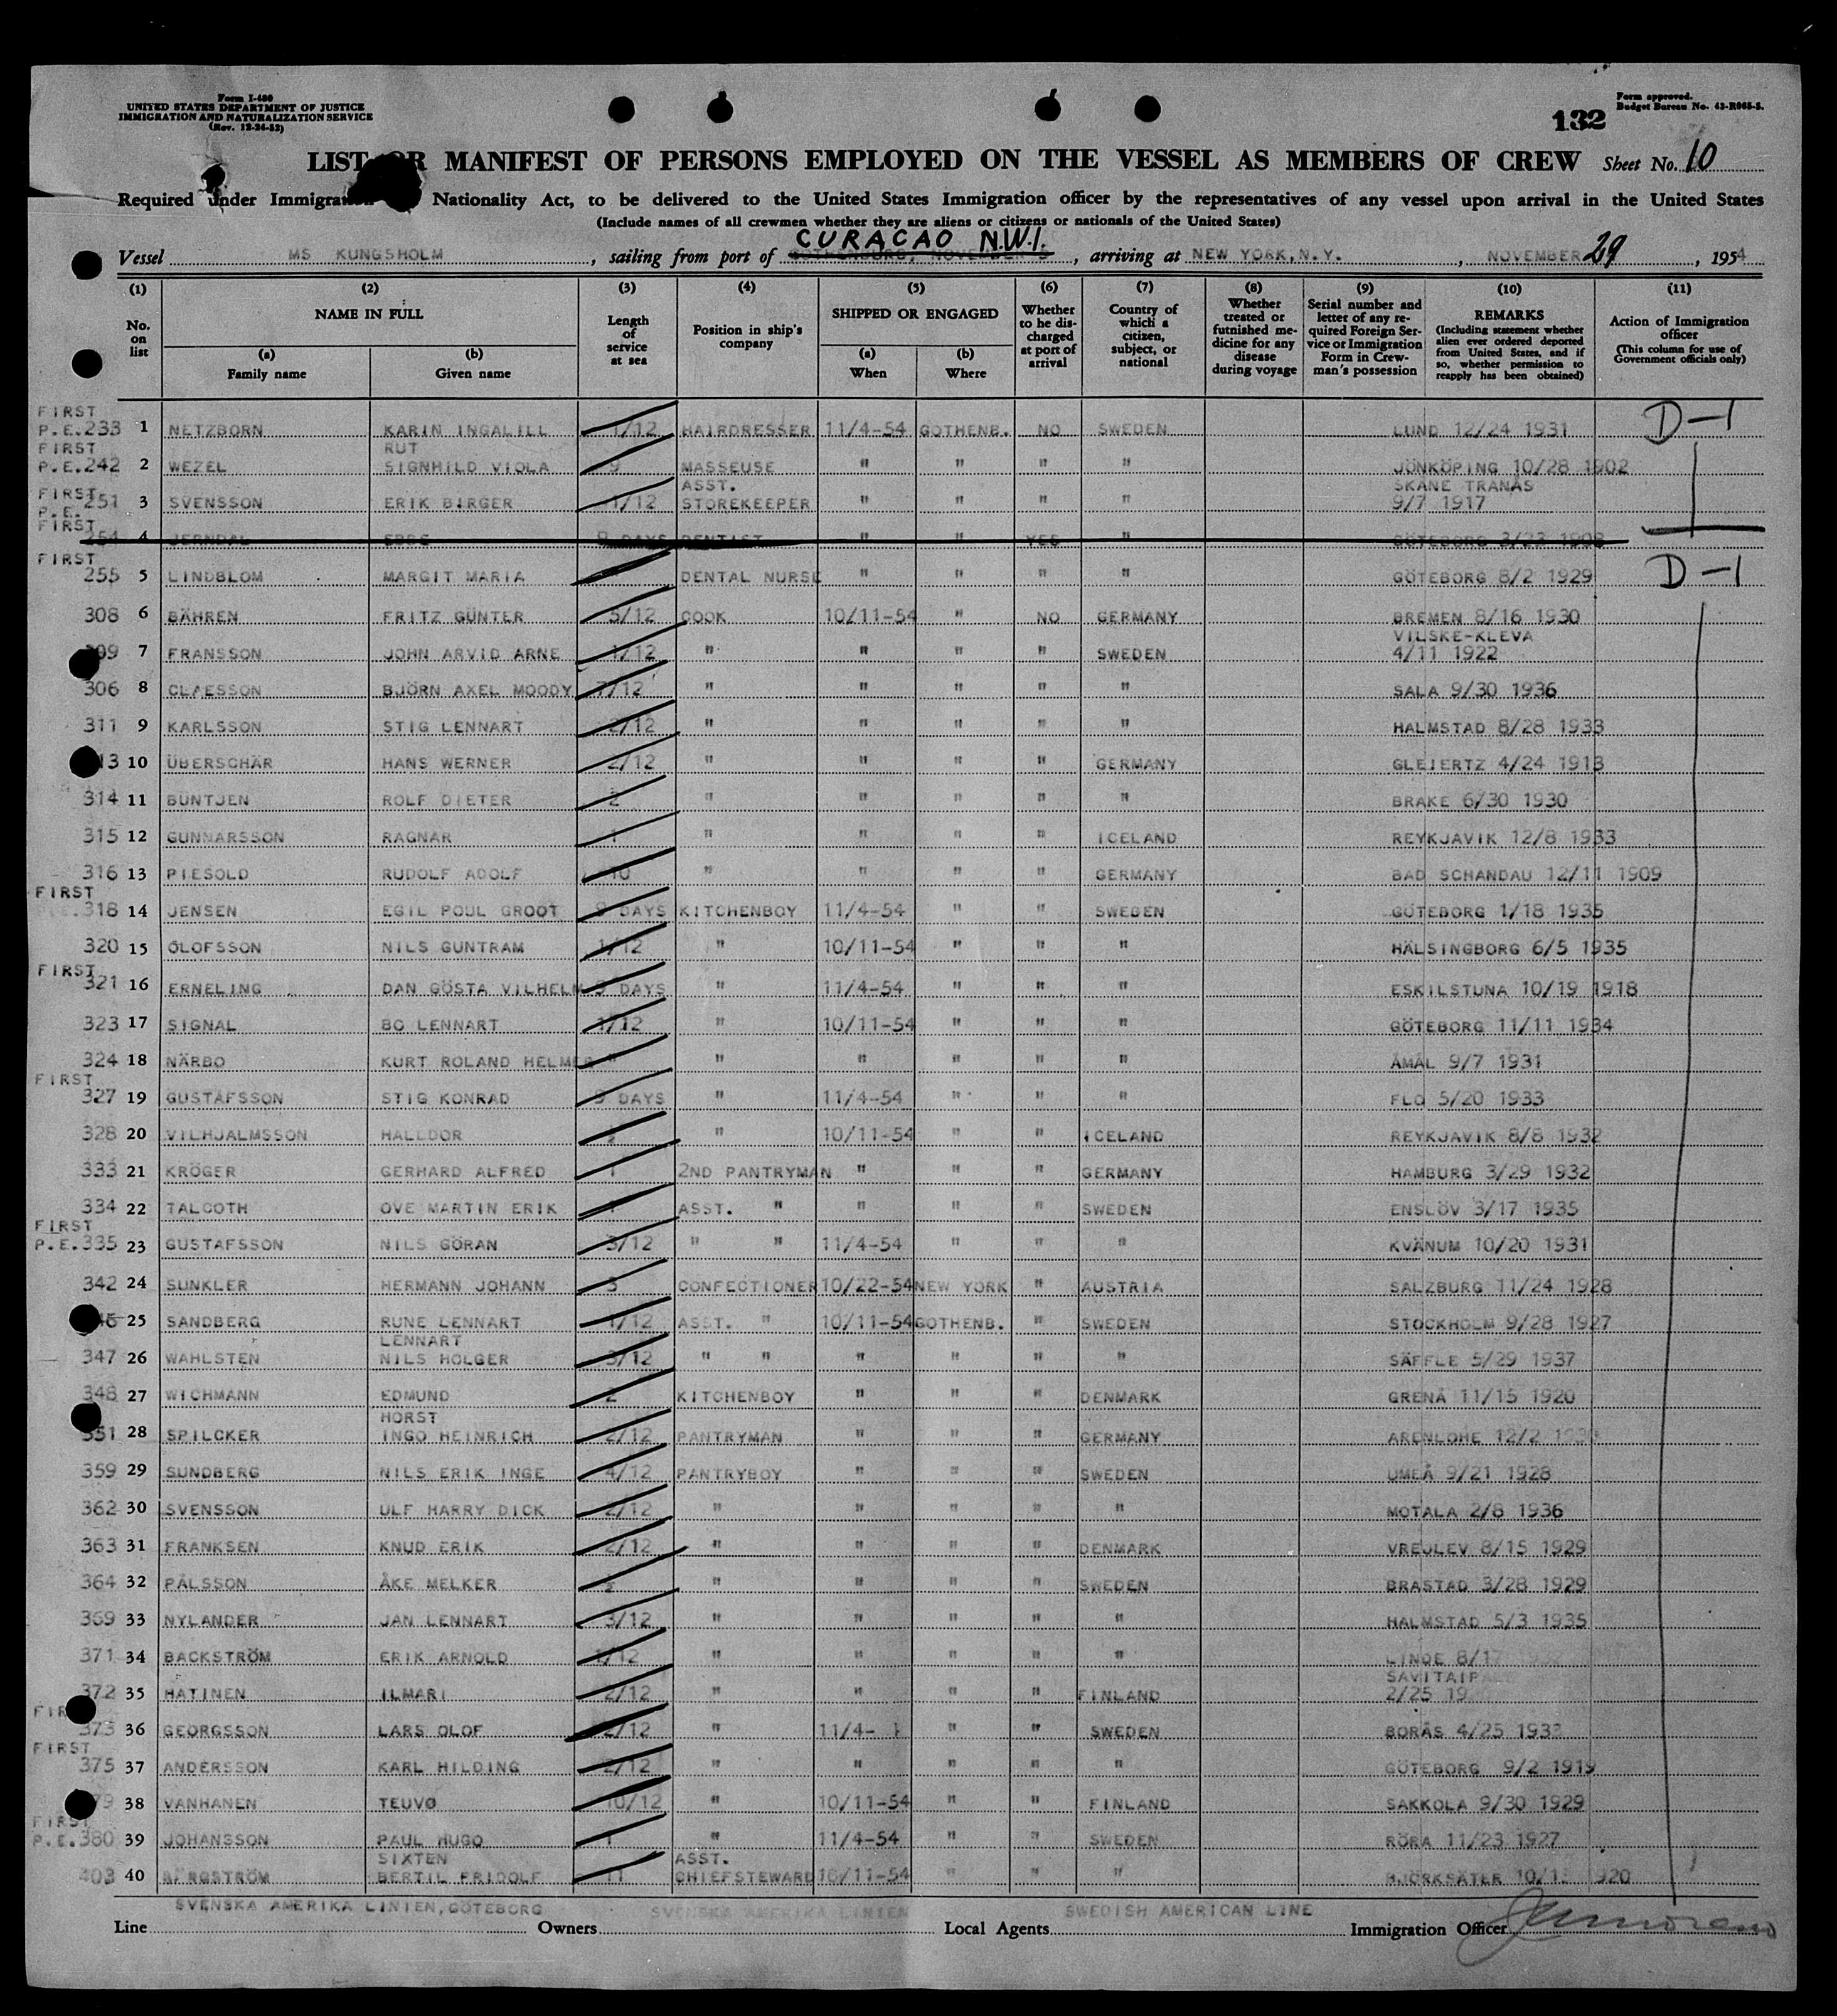 Form I-480
UNITED STATES DEPARTMENT OF JUSTICE
IMMIGRATION AND NATURALIZATION SERVICE
(Rev. 12-24-52)
Form approved.
Budget Bureau No. 43-R065-5.
132
LIST OR MANIFEST OF PERSONS EMPLOYED ON THE VESSEL AS MEMBERS OF CREW Sheet No. 10
Required under Immigration Nationality Act, to be delivered to the United States Immigration officer by the representatives of any vessel upon arrival in the United States
(Include names of all crewmen whether they are aliens or citizens or nationals of the United States)
CURACAO N.W.I.
Vessel MS KUNGSHOLM, sailing from port of GOTHENBURG, NOVEMBER, arriving at NEW YORK, N.Y., NOVEMBER 29, 1954
(1) No. on list
(2) NAME IN FULL (a) Family name (b) Given name
(3) Length of service at sea
(4) Position in ship's company
(5) SHIPPED OR ENGAGED (a) When (b) Where
(6) Whether to be discharged at port of arrival
(7) Country of which a citizen, subject, or national
(8) Whether treated or futnished medicine for any disease during voyage
(9) Serial number and letter of any required Foreign Service or Immigration Form in Crewman's possession
(10) REMARKS (Including statement whether alien ever ordered deported from United States, and if so, whether permission to reapply has been obtained)
(11) Action of Immigration officer (This column for use of Government officials only)
FIRST P.E.233 1 NETZBORN KARIN INGALILL 1/12 HAIRDRESSER 11/4-54 GOTHENB. NO SWEDEN LUND 12/24 1931 D-1
FIRST P.E.242 2 WEZEL RUT SIGNHILD VIOLA 9 MASSEUSE " " " " JÖNKÖPING 10/28 1902
FIRST P.E.251 3 SVENSSON ERIK BIRGER 1/12 ASST. STOREKEEPER " " " " SKANE TRANÅS 9/7 1917
FIRST 254 4 JERNDAL EBBE 9 DAYS DENTIST " " YES " GÖTEBORG 3/23
FIRST 255 5 LINDBLOM MARGIT MARIA DENTAL NURSE " " " " GÖTEBORG 8/2 1929 D-1
308 6 BÄHREN FRITZ GÜNTER 5/12 COOK 10/11-54 " NO GERMANY BREMEN 8/16 1930
09 7 FRANSSON JOHN ARVID ARNE 1/12 " " " " SWEDEN VILSKE-KLEVA 4/11 1922
306 8 CLAESSON BJÖRN AXEL MOODY 7/12 " " " " " SALA 9/30 1936
311 9 KARLSSON STIG LENNART 2/12 " " " " " HALMSTAD 8/28 1933
13 10 ÜBERSCHÄR HANS WERNER 2/12 " " " " GERMANY GLEIERTZ 4/24 1913
314 11 BÜNTJEN ROLF DIETER 2 " " " " " BRAKE 6/30 1930
315 12 GUNNARSSON RAGNAR 1 " " " " ICELAND REYKJAVIK 12/8 1933
316 13 PIESOLD RUDOLF ADOLF 10 " " " " GERMANY BAD SCHANDAU 12/11 1909
FIRST P.E.318 14 JENSEN EGIL POUL GROOT 9 DAYS KITCHENBOY 11/4-54 " " SWEDEN GÖTEBORG 1/18 1935
320 15 OLOFSSON NILS GUNTRAM 1/12 " 10/11-54 " " " HÄLSINGBORG 6/5 1935
FIRST 321 16 ERNELING DAN GÖSTA VILHELM 9 DAYS " 11/4-54 " " " ESKILSTUNA 10/19 1918
323 17 SIGNAL BO LENNART 1/12 " 10/11-54 " " " GÖTEBORG 11/11 1934
324 18 NÄRBO KURT ROLAND HELMER " " " " " " ÅMÅL 9/7 1931
FIRST 327 19 GUSTAFSSON STIG KONRAD 9 DAYS " 11/4-54 " " " FLO 5/20 1933
328 20 VILHJALMSSON HALLDOR " 10/11-54 " " ICELAND REYKJAVIK 8/8 1932
333 21 KRÖGER GERHARD ALFRED 1 2ND PANTRYMAN " " " GERMANY HAMBURG 3/29 1932
334 22 TALCOTH OVE MARTIN ERIK ASST. " " " " SWEDEN ENSLÖV 3/17 1935
FIRST P.E.335 23 GUSTAFSSON NILS GÖRAN 3/12 " " 11/4-54 " " " KVÄNUM 10/20 1931
342 24 SUNKLER HERMANN JOHANN 3 CONFECTIONER 10/22-54 NEW YORK " AUSTRIA SALZBURG 11/24 1928
25 SANDBERG RUNE LENNART 1/12 ASST. " 10/11-54 GOTHENB. " SWEDEN STOCKHOLM 9/28 1927
347 26 WAHLSTEN LENNART NILS HOLGER 3/12 " " " " " " SÄFFLE 5/29 1937
348 27 WICHMANN EDMUND 2 KITCHENBOY " " " DENMARK GRENÅ 11/15 1920
351 28 SPILCKER HORST INGO HEINRICH 2/12 PANTRYMAN " " " GERMANY ARENLOHE 12/2
359 29 SUNDBERG NILS ERIK INGE 4/12 PANTRYBOY " " " SWEDEN UMEÅ 9/21 1928
362 30 SVENSSON ULF HARRY DICK 2/12 " " " " " MOTALA 2/8 1936
363 31 FRANKSEN KNUD ERIK 2/12 " " " " DENMARK VREJLEV 8/15 1929
364 32 PÅLSSON ÅKE MELKER " " " " SWEDEN BRASTAD 3/28 1929
369 33 NYLANDER JAN LENNART 3/12 " " " " " HALMSTAD 5/3 1935
371 34 BACKSTRÖM ERIK ARNOLD 1/12 " " " " " LINDE 8/17
372 35 HATINEN ILMARI 2/12 " " " " FINLAND SAVITAIPALE 2/25
FIRST 373 36 GEORGSSON LARS OLOF 2/12 " 11/4- " " SWEDEN BORÅS 4/25 1933
FIRST 375 37 ANDERSSON KARL HILDING 2/12 " " " " " GÖTEBORG 9/2 1919
79 38 VANHANEN TEUVO 10/12 " 10/11-54 " " FINLAND SAKKOLA 9/30 1929
FIRST P.E.380 39 JOHANSSON PAUL HUGO 1 " 11/4-54 " " SWEDEN RÖRA 11/23 1927
403 40 BERGSTRÖM SIXTEN BERTIL FRIDOLF 11 ASST. CHIEFSTEWARD 10/11-54 " " " BJÖRKSÄTER 1920
Line SVENSKA AMERIKA LINIEN, GÖTEBORG Owners SVENSKA AMERIKA LINIEN Local Agents SWEDISH AMERICAN LINE Immigration Officer